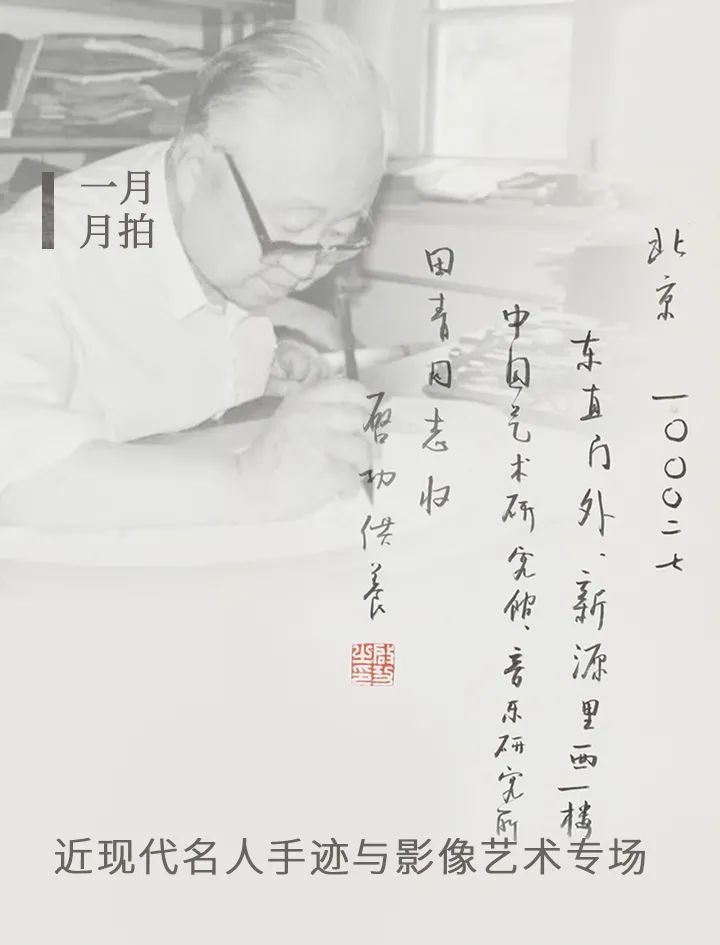 一月
月拍
北京 一〇〇〇二七
东直门外、新源里西一楼
中国艺术研究院、音乐研究所
田青同志收
启功供養
啟功
之印
近现代名人手迹与影像艺术专场